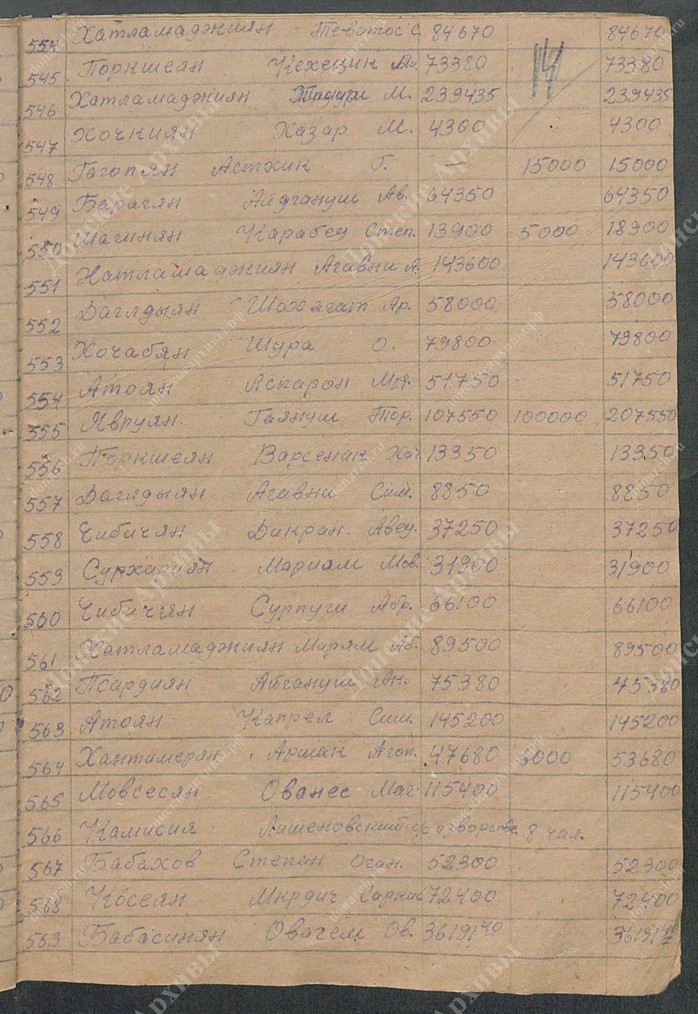 554 Хатламаджиян Тевтос С. 84670 84670
545 Поркшеян Кехецик Ма. 73380 73380
546 Хатламаджиян М. 239435 239435
547 Хочкиян Хазар М. 4300 4300
548 Гогопян Астхик Г. — 15000 15000
549 Бабагян Айдгануш Ав. 64350 64350
550 Шагинян Карабед Степ. 13900 5000 18900
551 Хатламаджиян Агавни А. 143600 143600
552 Даглдыян Шохагат Ар. 58000 58000
553 Хочабян Шура О. 79800 79800
554 Атоян Аспарон 51750 51750
555 Явруян Гаянуш Тор. 107550 100000 207550
556 Поркшеян Варсеник Хач 13350 13350
557 Даглдыян Агавни Сим. 8850 8850
558 Чибичян Дикран. Авед. 37250 37250
559 Сурхариян Мариам Мов. 31900 31900
560 Чибичиян Сурпуги Абр. 66100 66100
561 Хатламаджиян Марям Аб. 89500 89500
562 Псардиян Айгануш Ак. 75380 45380
563 Атоян Капрел Сим. 145200 145200
564 Хантимерян Аршак Агоп. 47680 6000 53680
565 Мовсесян Ованес Маг 115400 115400
566 Камисия 8 чал.
567 Бабахов Степан Оган. 52300 52300
568 Косеян Мкрдич Саркис 72400 72400
569 Бабасинян Овагем Ов. 36191 40 36191 40
14
Донские Архивы